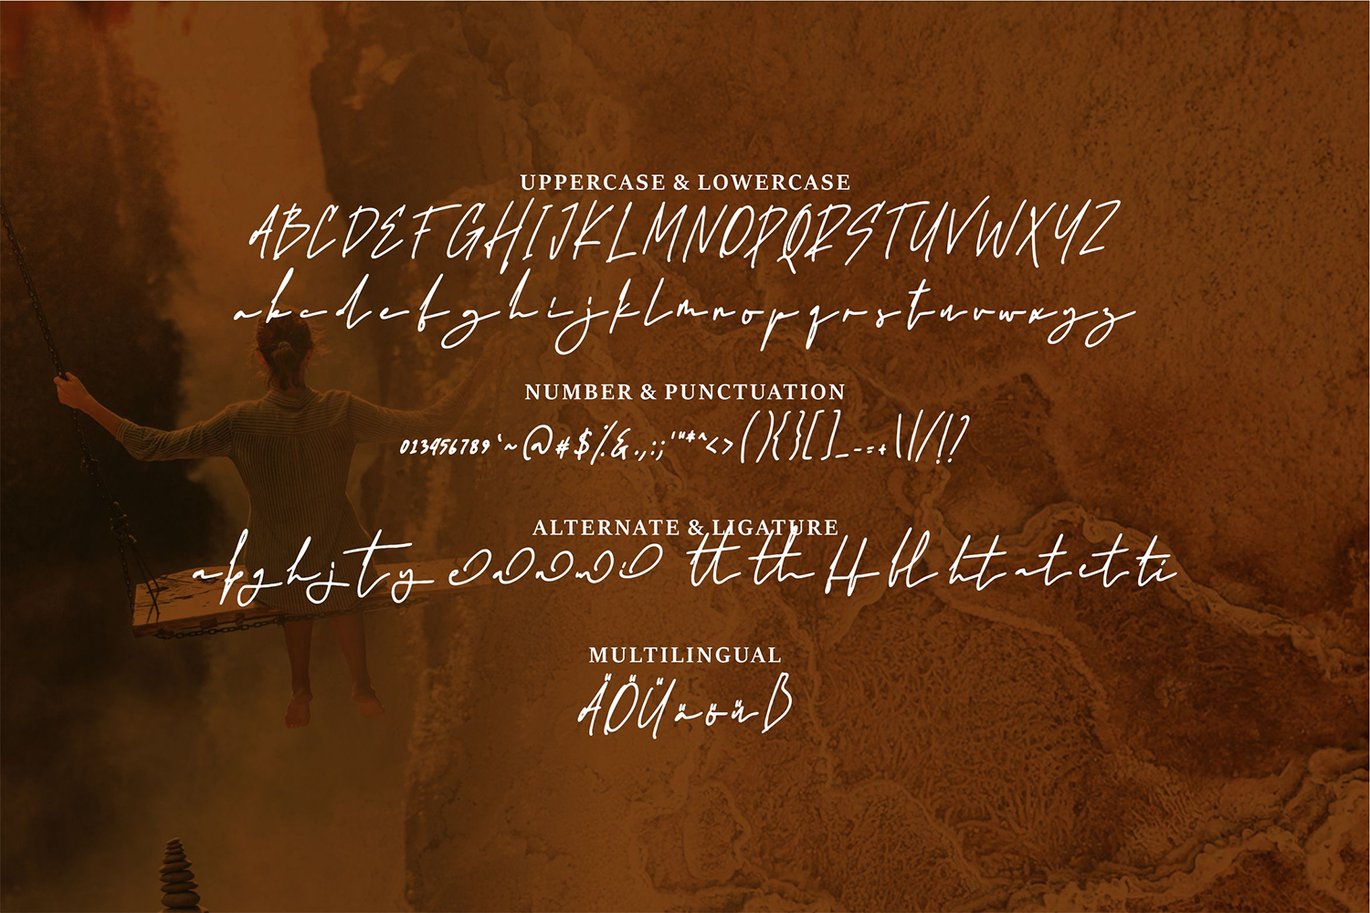 UPPERCASE & LOWERCASE
ABCDEFGHIJKLMNOPQRSTUVWXYZ
abcdefghijklmnopqrstuvwxyz
NUMBER & PUNCTUATION
0123456789`~@#$%&.,:;'"*^<>(){}[]_-=+\|/!?
ALTERNATE & LIGATURE
tt th ff bl ht at et ti
MULTILINGUAL
ÄÖÜäöüß